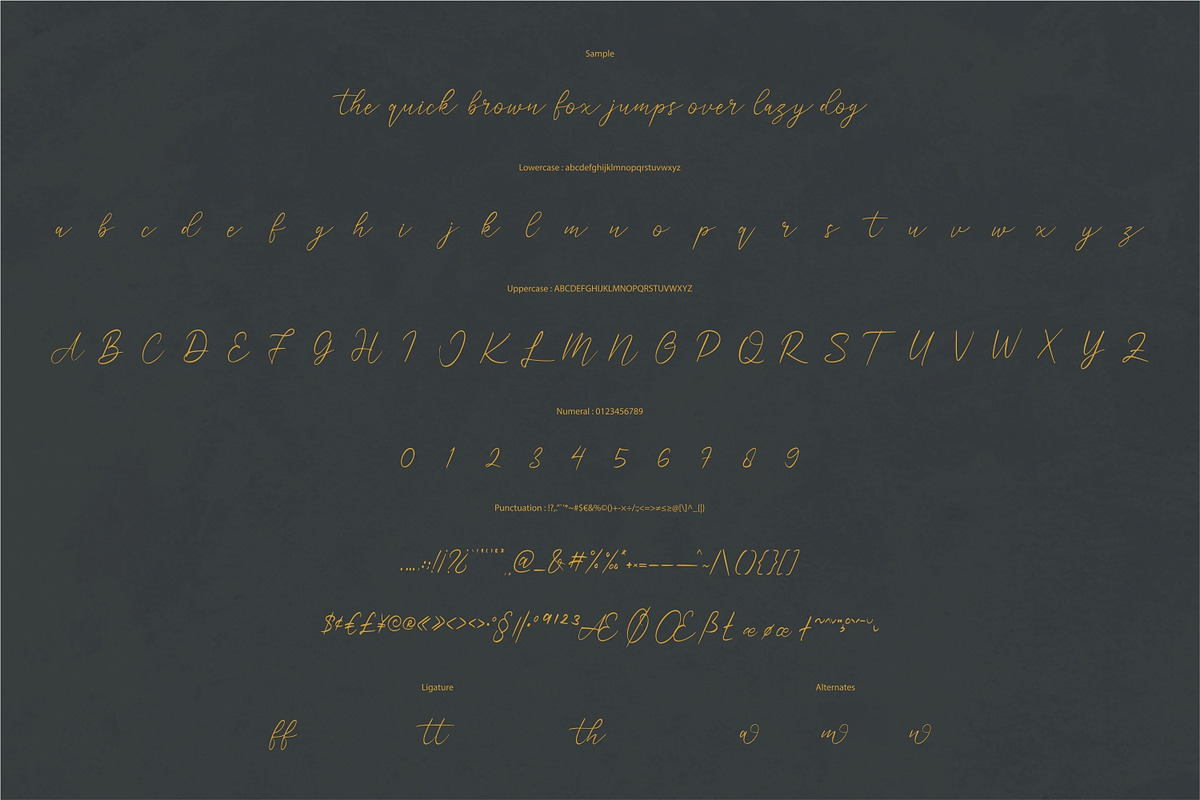 Sample
the quick brown fox jumps over lazy dog
Lowercase : abcdefghijklmnopqrstuvwxyz
a b c d e f g h i j k l m n o p q r s t u v w x y z
Uppercase : ABCDEFGHIJKLMNOPQRSTUVWXYZ
A B C D E F G H I J K L M N O P Q R S T U V W X Y Z
Numeral : 0123456789
0 1 2 3 4 5 6 7 8 9
Punctuation : !?,."'"*~#$€&%©()+-×÷/:;<=>≠≤≥@[\]^_{|}
@_&#%‰*+×=^~/\(){}[]
$¢€£¥©®«»‹›<>·°§|ªº123ÆØŒßŁæøœ†
Ligature Alternates
ff tt th a m w